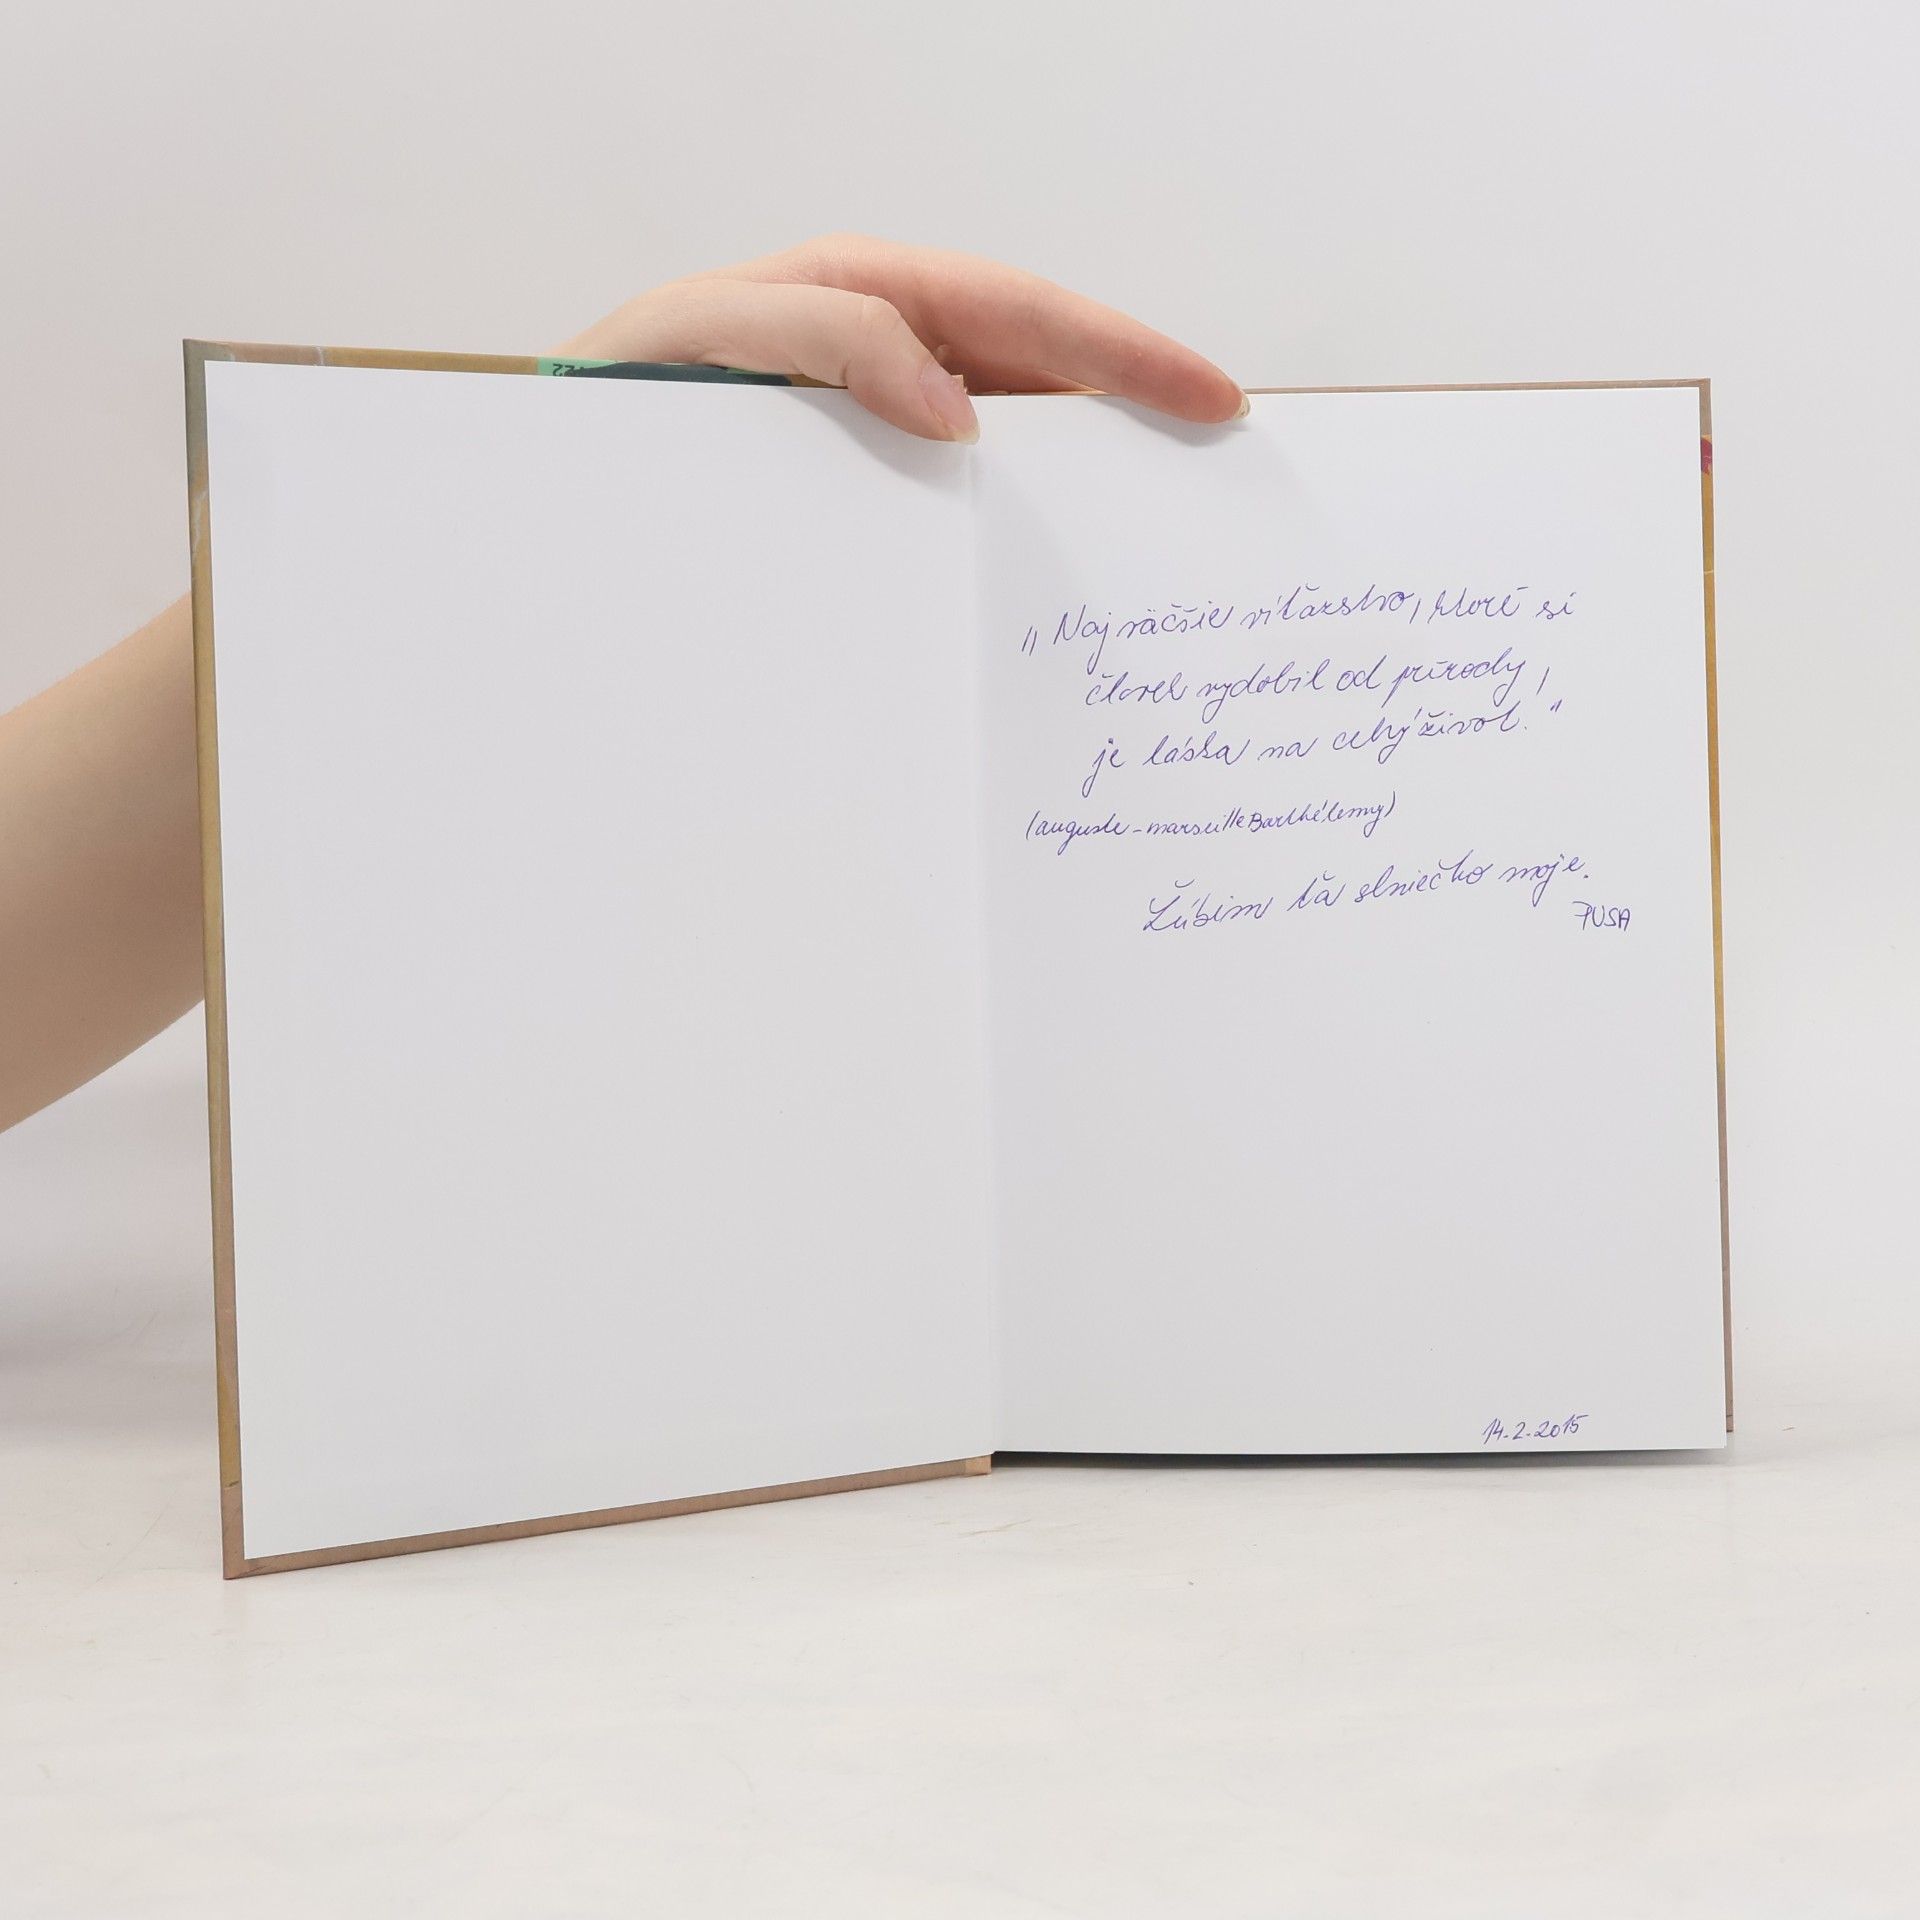 „Najväčšie víťazstvo, ktoré si
človek vydobil od prírody,
je láska na celý život.“
(auguste-marseille Barthélemy)
Ľúbim ťa slniečko moje.
PUSA
14.2.2015